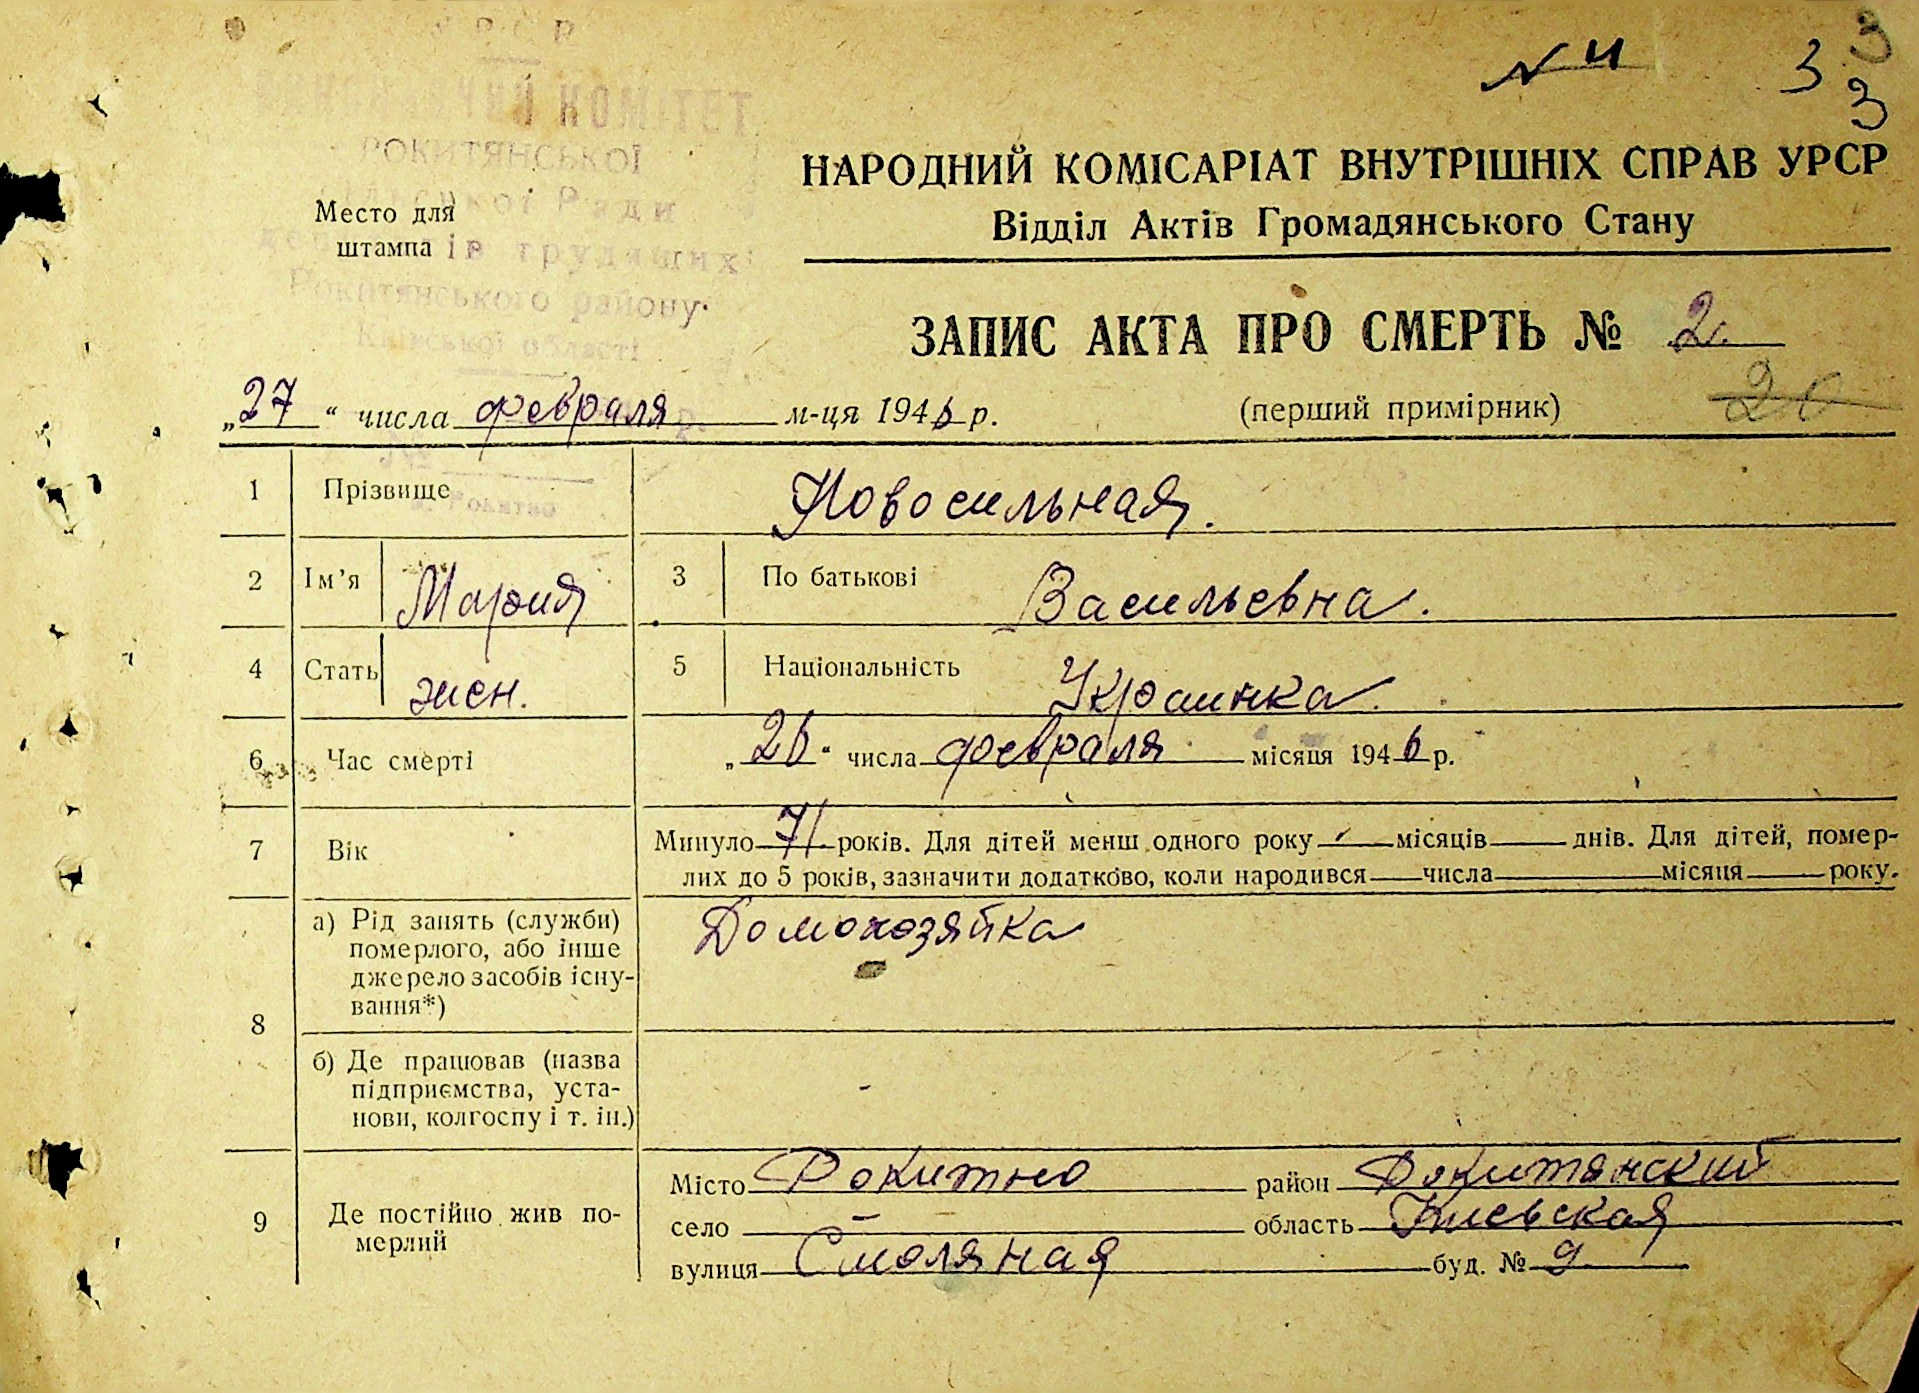 УРСР
№ 4 3 3
ВИКОНАВЧИЙ КОМІТЕТ
РОКИТЯНСЬКОЇ
НАРОДНИЙ КОМІСАРІАТ ВНУТРІШНІХ СПРАВ УРСР
Место для
штампа
Ради
трудящих
Відділ Актів Громадянського Стану
Рокитянського району
Київської області
ЗАПИС АКТА ПРО СМЕРТЬ № 2
„27" числа февраля м-ця 1946 р.
(перший примірник)
1 Прізвище Новосильная.
2 Ім'я Мария 3 По батькові Васильевна.
4 Стать жен. 5 Національність Украинка.
6 Час смерті „26" числа февраля місяця 1946 р.
7 Вік Минуло 71 років. Для дітей менш одного року місяців днів. Для дітей, помер-
лих до 5 років, зазначити додатково, коли народився числа місяця року.
8 а) Рід занять (служби) Домохозяйка
померлого, або інше
джерело засобів існу-
вання*)
б) Де працював (назва
підприємства, уста-
нови, колгоспу і т. ін.) -
9 Де постійно жив по-
мерлий
Місто Рокитно район Рокитянский
село - область Киевская
вулиця Смоляная буд. № 9